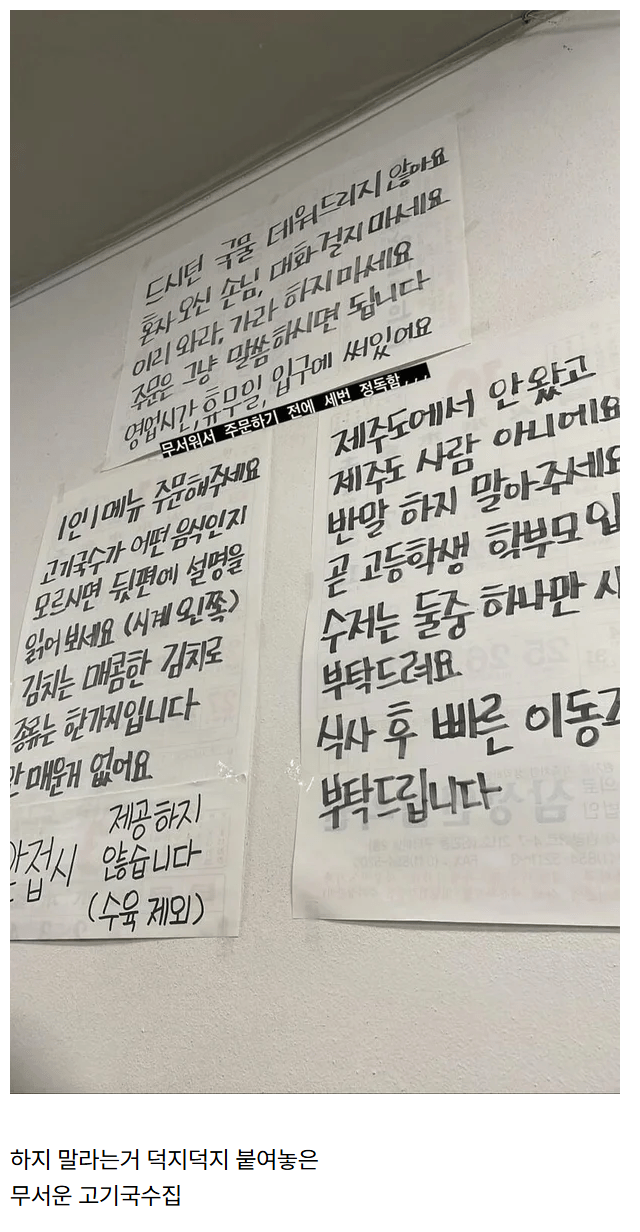 드시던 국물 데워드리지 않아요
혼자 오신 손님, 대화 걸지 마세요
이리 와라, 가라 하지 마세요
주문은 그냥 말씀하시면 됩니다
영업시간, 휴무일, 입구에 써있어요
무서워서 주문하기 전에 세번 정독함...
1인 1메뉴 주문해주세요
고기국수가 어떤 음식인지
모르시면 뒷편에 설명을
읽어보세요 (시계 왼쪽)
김치는 매콤한 김치로
종류는 한가지입니다
안 매운거 없어요
앞접시 제공하지
않습니다
(수육 제외)
제주도에서 안 왔고
제주도 사람 아니에요
반말 하지 말아주세요
곧 고등학생 학부모 입
수저는 둘중 하나만 사
부탁드려요
식사 후 빠른 이동
부탁드립니다
25 26
하지 말라는거 덕지덕지 붙여놓은
무서운 고기국수집